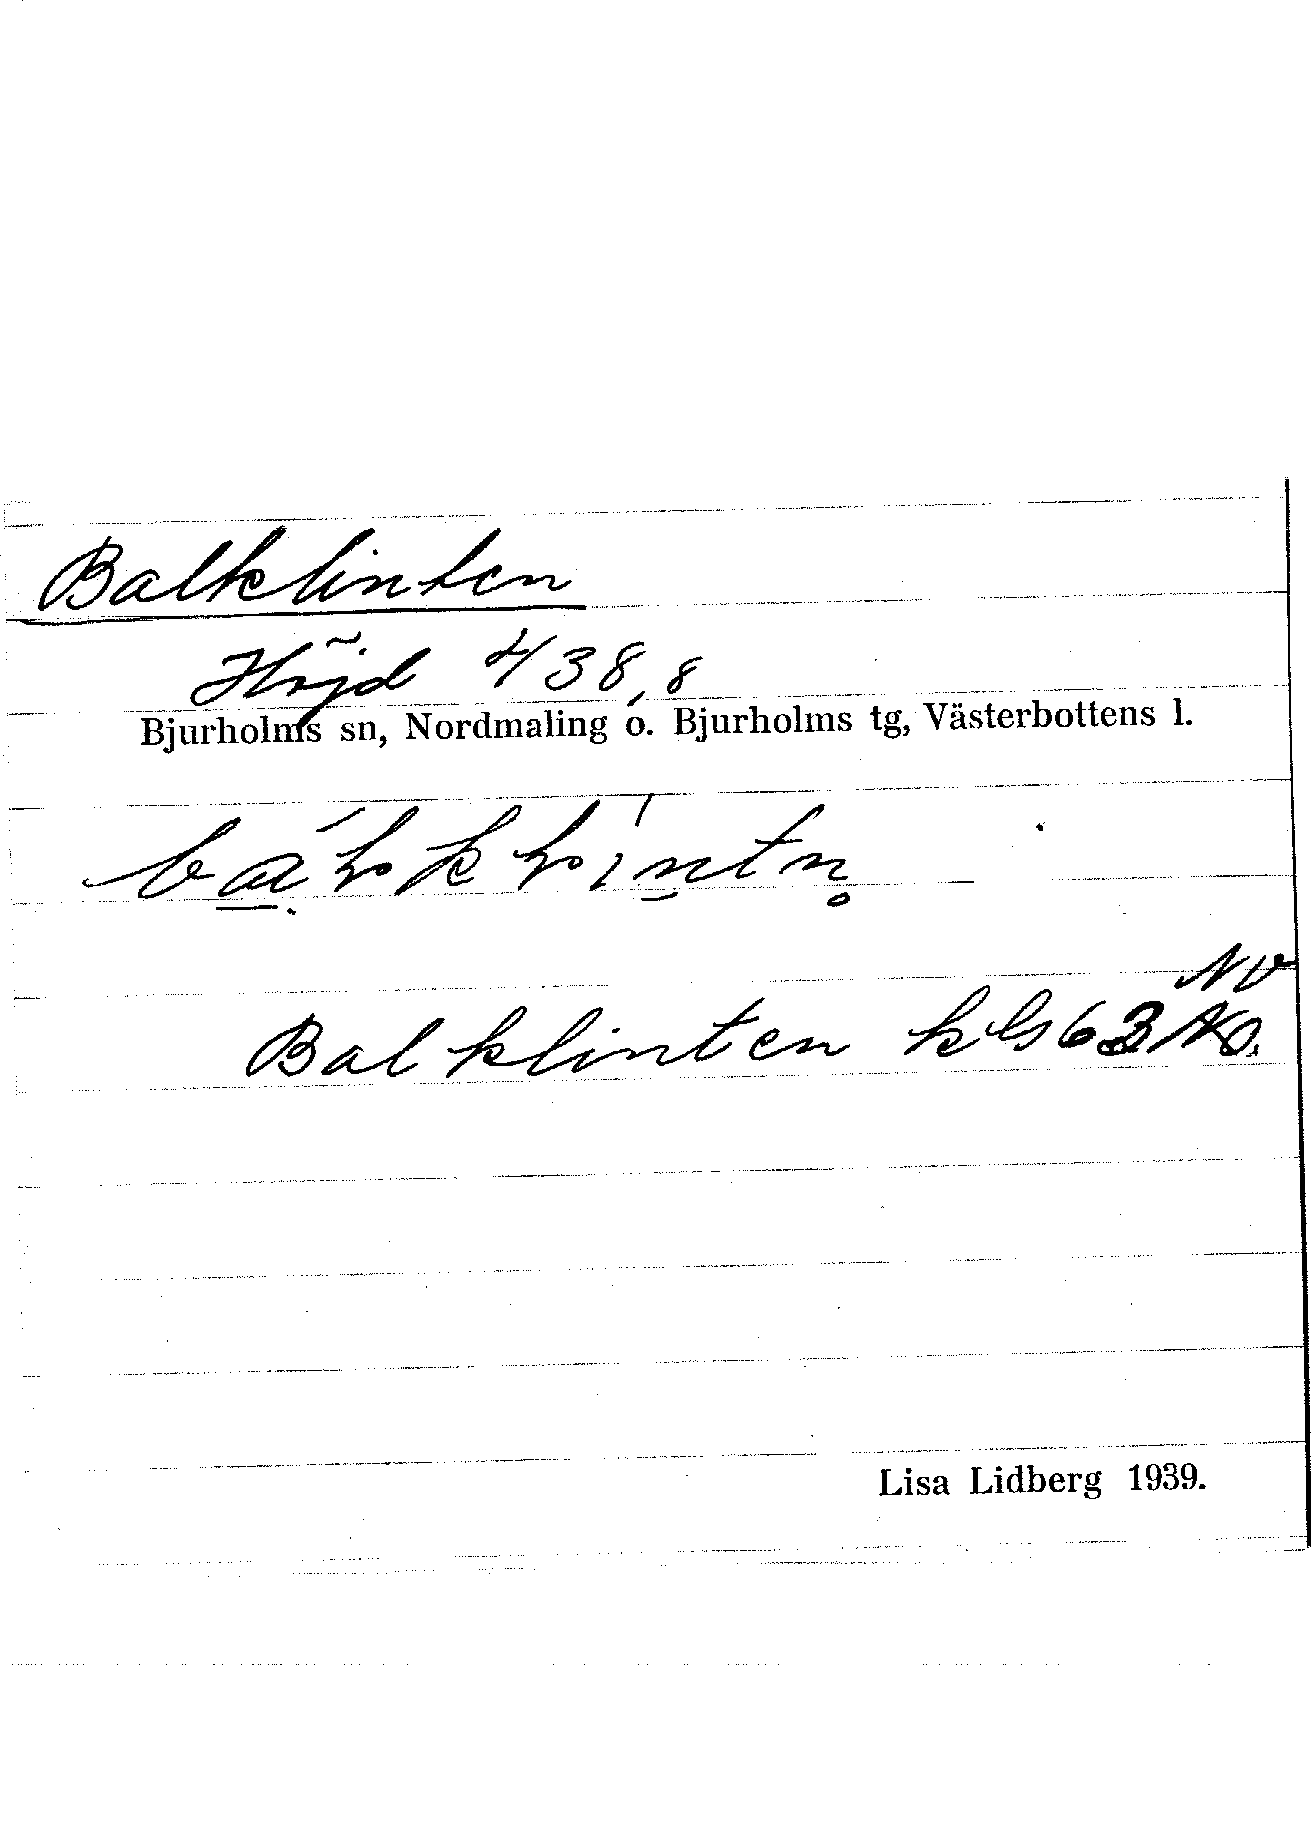 Balklinten
Höjd 438,8
Bjurholms sn, Nordmaling o. Bjurholms tg, Västerbottens l.
NV
Balklinten kbs 63
Lisa Lidberg 1939.